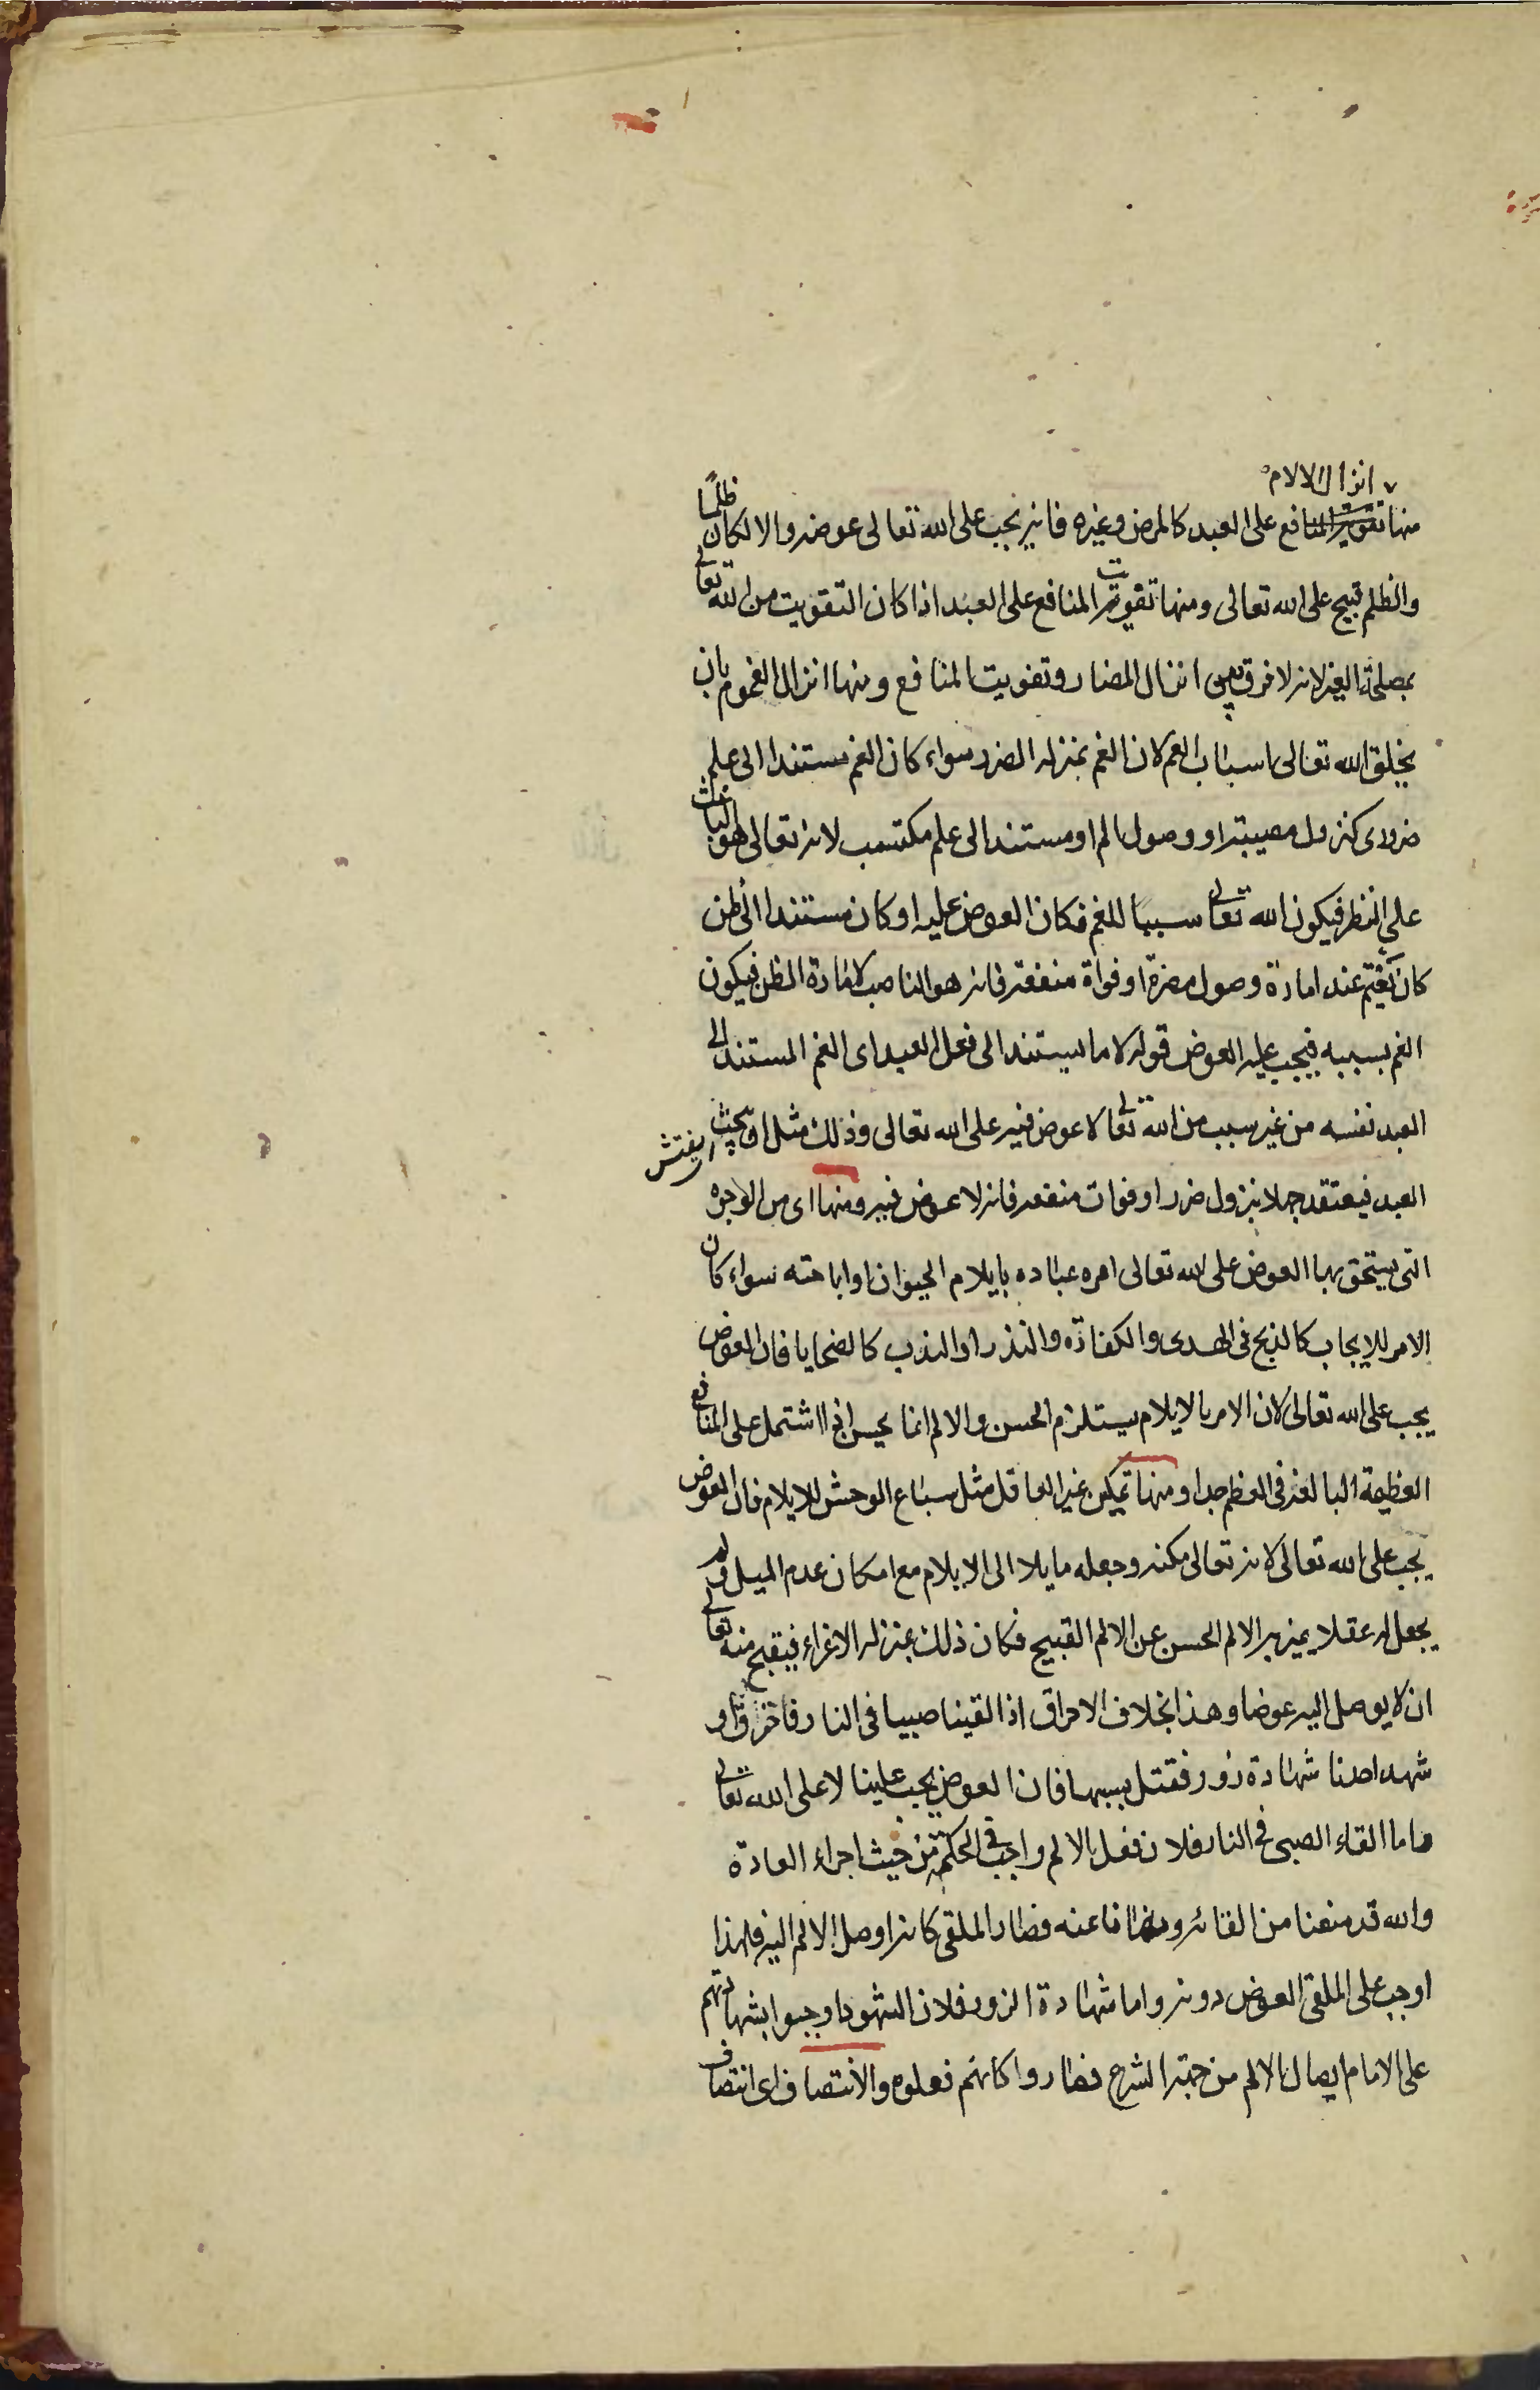 انزال الالام
منها تفويت المنافع على العبد كالمرض وغيره فانه يجب على الله تعالى عوضه والا لكان ظلمًا
والظلم قبيح على الله تعالى ومنها تفويت المنافع على العبد اذا كان التفويت من الله تعالى
بمصلحة الغير لانه لا فرق بين انزال المضار وتفويت المنافع ومنها انزال الغموم بان
يخلق الله تعالى اسباب الغم لان الغم بمنزلة الضرر سواء كان الغم مستندا الى علم
ضرورى كنزول مصيبة او وصول الم او مستند الى علم مكتسب لانه تعالى هو الباعث
على النظر فيكون الله تعالى سببا للغم فكان العوض عليه او كان مستندا الى ظن
كان يغتم عند امارة وصول مضرة او فواة منفعة فانه هو الناصب لامارة الظن فيكون
الغم بسببه فيجب عليه العوض قوله لا ما يستند الى فعل العبد اى الغم المستند الى
العبد نفسه من غير سبب من الله تعالى لا عوض فيه على الله تعالى وذلك مثل ان يبحث يفتش
العبد فيعتقد جهلا بنزول ضرر او فوات منفعة فانه لا عوض فيه ومنها اى من الوجوه
التى يستحق بها العوض على الله تعالى امره عباده بايلام الحيوان او اباحته سواء كان
الامر للايجاب كالذبح فى الهدى والكفارة والنذر او الندب كالضحايا فان العوض
يجب على الله تعالى لان الامر بالايلام يستلزم الحسن والالم انما يحسن اذا اشتمل على المنافع
العظيمة البالغة فى العظم جدا ومنها تمكين غير العاقل مثل سباع الوحش للايلام فان العوض
يجب على الله تعالى لانه تعالى مكنه وجعله مايلا الى الايلام مع امكان عدم الميل ولم
يجعل له عقلا يميز به الالم الحسن عن الالم القبيح فكان ذلك بمنزلة الاغراء فيقبح منه تعالى
ان لا يوصل اليه عوضا وهذا بخلاف الاحراق اذا القينا صبيا فى النار فاحترق او
شهد احدنا شهادة زور فقتل بسببها فان العوض يجب علينا لا على الله تعالى
فاما القاء الصبى فى النار فلان فعل الالم واجب فى الحكمة من حيث اجراء العادة
والله قد منعنا من القائه ونهانا عنه فصار الملقى كانه اوصل الالم اليه فلهذا
اوجب على الملقى العوض دونه واما شهادة الزور فلان الشهود اوجبوا بشهادتهم
على الامام ايصال الالم من جهة الشرع فصاروا كانهم فعلوه والانتصاف اى انتصاف